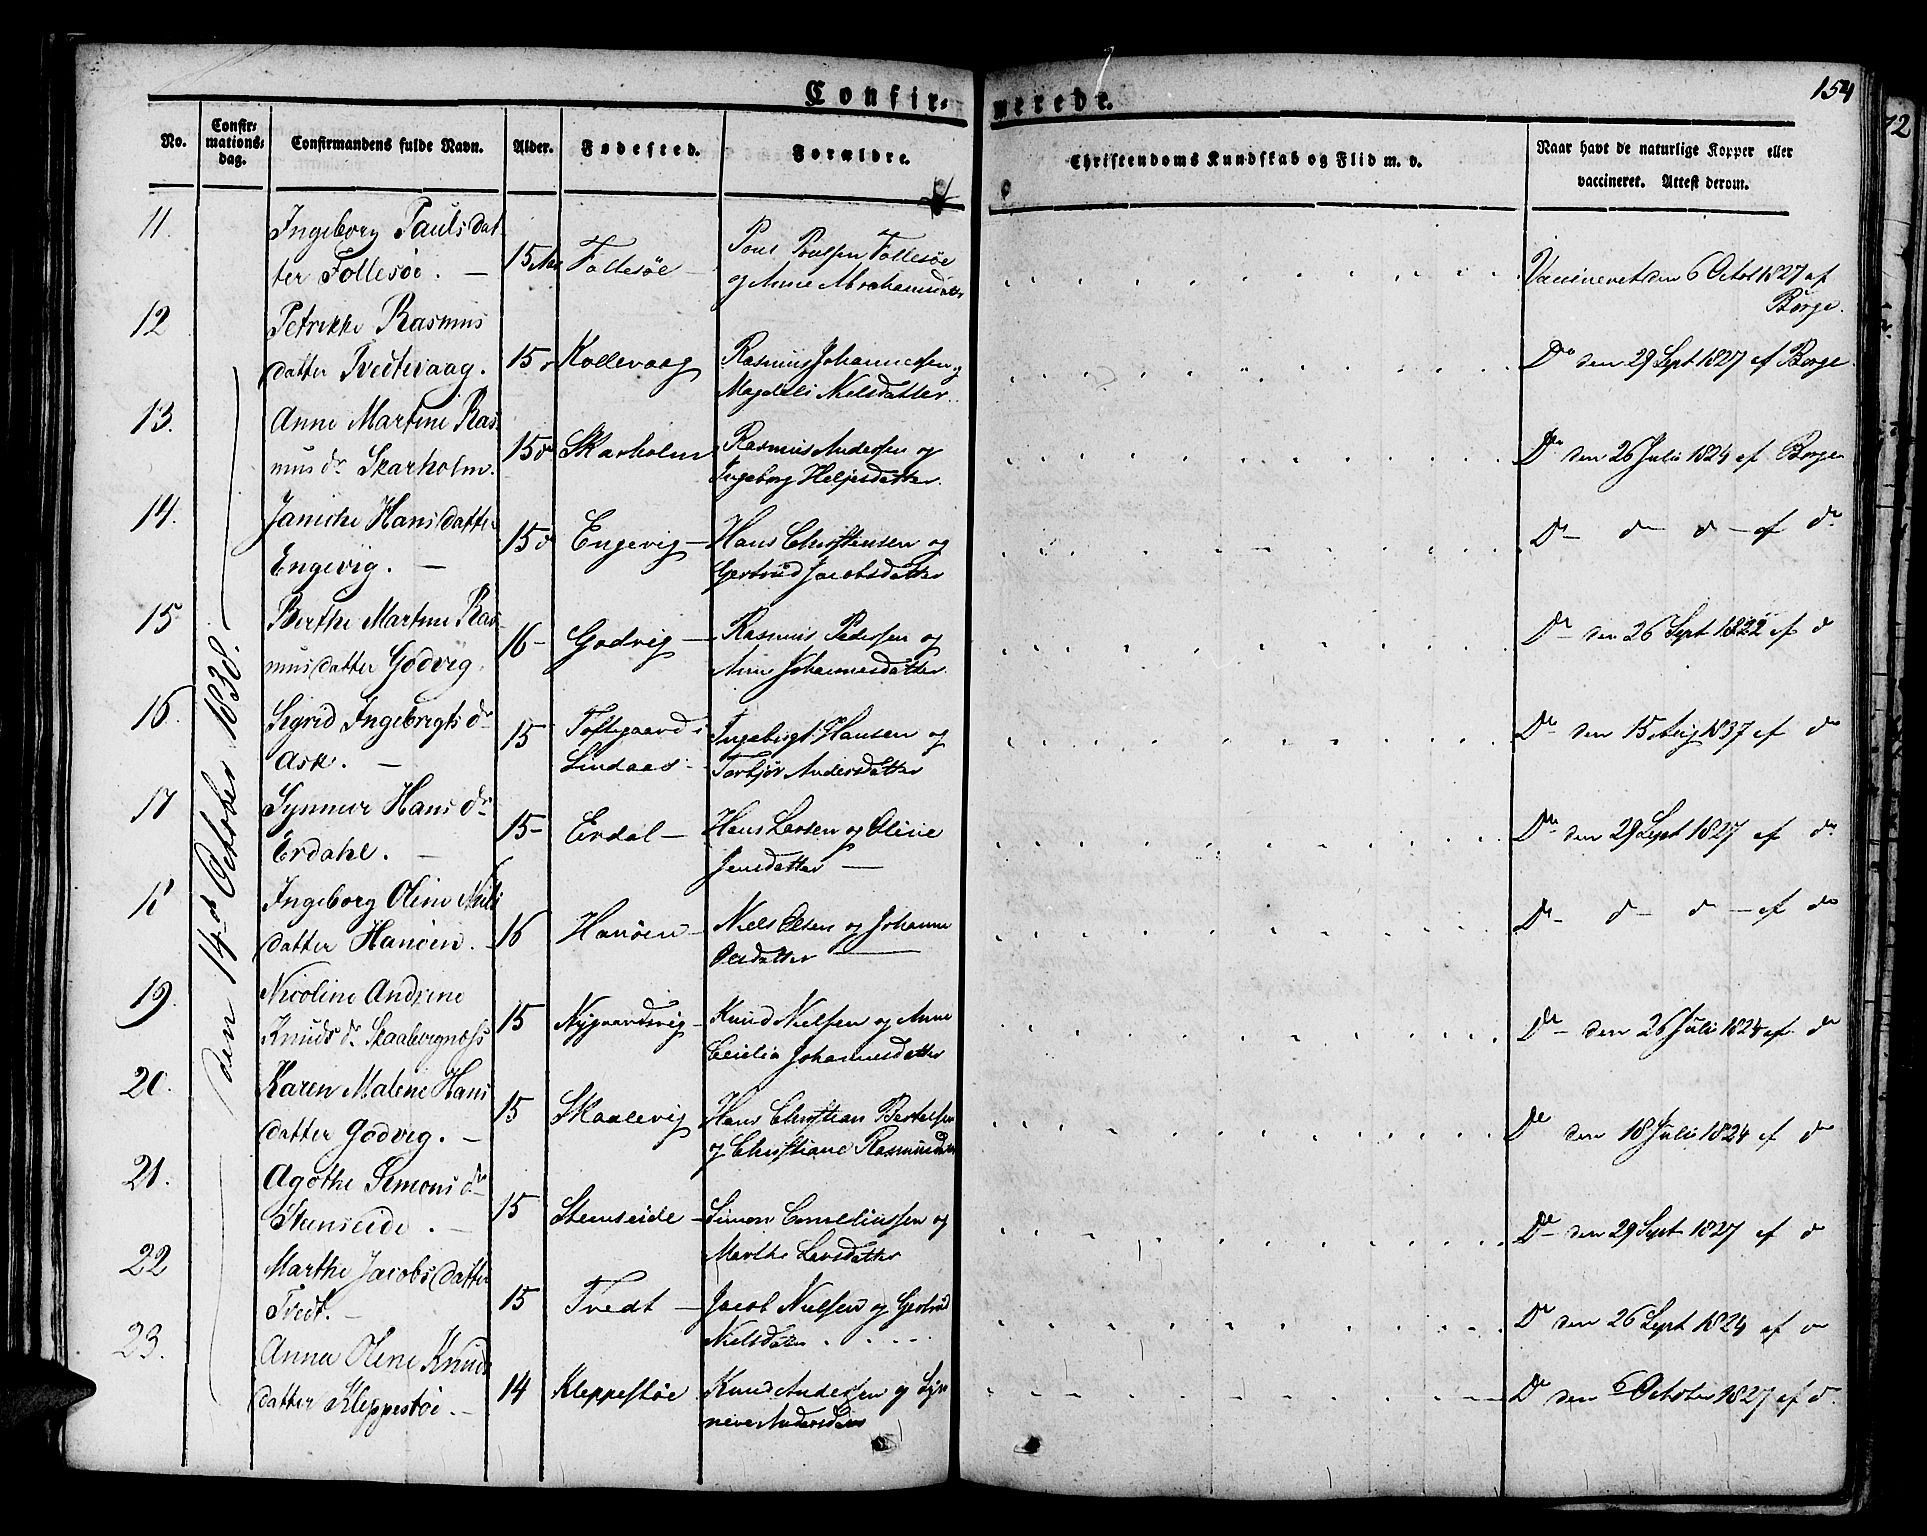 Confirmerede.
154
No.
Confir-
mations-
dag.
Confirmandens fulde Navn.
Alder.
Fødested.
Forældre.
Christendoms Kundskab og Flid m. v.
Naar havt de naturlige Kopper eller
vaccineret. Attest derom.
den 14de October 1838.
11.
Ingeborg Pauls dat
ter Follesöe. —
15 Aar
Follesöe —
Poul Poulsen Follesöe
og Anne Abrahamsdatter
Vacineret den 6 Octob 1827 af
Børge.
12
Petrikke Rasmus
datter Tvedtevaag.
15
Kollevaag
Rasmus Johannessen og
Magdeli Nielsdatter.
Do den 29 Sept 1827 af Børge.
13.
Anne Martine Ras
mus dr Skarholm.
15 do
Skarholm
Rasmus Andersen og
Ingeborg Heljesdatter.
Do den 26 Juli 1824 af Børge
14.
Janiche Hansdatter
Engevig. —
15 d
Engevig —
Hans Christensen og
Gertrud Jacobsdatter
Do — do — d — af do
15
Berthe Martine Ras
musdatter Godvig.
16 -
Godvig —
Rasmus Pedersen og
Anne Johannesdatter.
Do — den 26 Sept 1822 af d
16.
Sigrid Ingebrigts dr
Ask. —
15
Toftegaard i
Lindaas -
Ingebrigt Hansen og
Torbjør Andersdatter
Do den 15 Aug 1837 af do
17
Synneve Hans dr
Erdahl. —
15 -
Erdal —
Hans Larsen og Oline
Jensdatter —
Do den 29 Sept 1827 af do
18
Ingeborg Oline Niels
datter Hanöen. -
16
Hanöen —
Niels Olsen og Johanne
Olesdatter —
Do — d — d — af do
19.
Nicoline Andrine
Knuds dr Skaalevignæss
15
Nygaardsvig
Knud Nielsen og Anne
Cecilia Johannesdatter
Do — den 26 Juli 1824 af do
20.
Karen Malene Hans
datter Godvig. —
15
Skaalevig
Hans Christian Bertelsen
og Christiane Rasmusdatter
Do den 18 Juli 1824 af do
21.
Agothe Simons dr
Steenseide. —
15
Stenseide —
Simon Corneliussen og
Marthe Larsdatter
Do — den 29 Sept 1827 af d
22
Marthe Jacobsdatter
Tvedt. —
15
Tvedt —
Jacob Nielsen og Gertrud
Nielsdatter
Do den 26 Sept 1824 af d
23.
Anna Oline Knuds
datter Kleppestöe. —
14
Kleppestöe
Knud Andersen og Syn
neve Andersdatter
Do den 6 October 1827 af d.
12